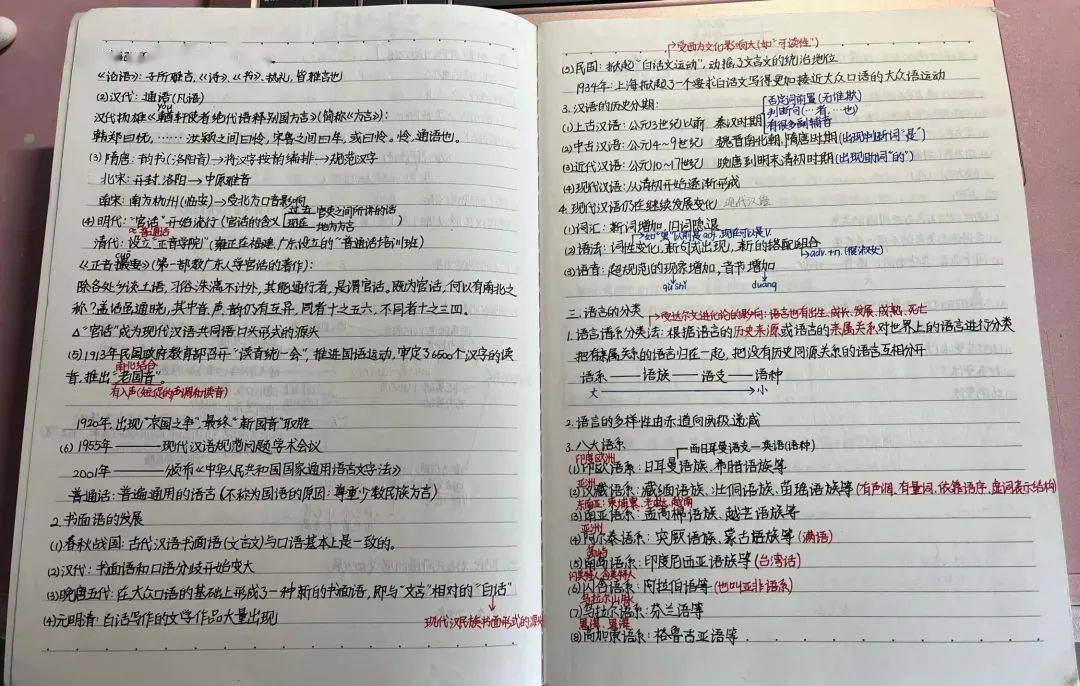 《论语》：子所雅言，《诗》、《书》、执礼，皆雅言也
(2)汉代：通语(凡语)
you
汉代扬雄《輶轩使者绝代语释别国方言》(简称《方言》)：
韩郑曰怃，……汝颍之间曰怜，宋鲁之间曰牟，或曰怜。怜，通语也。
(3)隋唐：韵书(洛阳音)→将汉字按韵编排→规范汉字
北宋：开封、洛阳→中原雅音
南宋：南方杭州(临安)→受北方口音影响
(4)明代："官话"开始流行(官话的含义 过去 官吏之间所讲的话
现在 地方方言 )
≈普通话
清代：设立"正音学院"(雍正在福建、广东设立的"普通话培训班)
《正音撮要》(第一部教广东人学官话的著作)：
除各处乡谈土语，习俗侏漓不计外，其能通行者，是谓官话。既为官话，何以有南北之
称？盖话虽通晓，其中音、声、韵仍有互异，同者十之五六，不同者十之三四。
△"官话"成为现代汉语共同语口头形式的源头
(5)1913年民国政府教育部召开"读音统一会"，推进国语运动，审定了6500个汉字的读
音，推出"老国音"。
南北结合
有入声(短促的声调和读音)
1920年，出现"京国之争"，最终"新国音"取胜
(6)1955年————现代汉语规范问题学术会议
2001年————颁布《中华人民共和国国家通用语言文字法》
普通话：普遍通用的语言(不称为国语的原因：尊重少数民族方言)
2.书面语的发展
(1)春秋战国：古代汉语书面语(文言文)与口语基本上是一致的。
(2)汉代：书面语和口语分歧开始变大
(3)晚唐五代：在大众口语的基础上形成了一种新的书面语，即与"文言"相对的"白话"
(4)元明清：白话写作的文学作品大量出现
现代汉民族书面形式的源头
受西方文化影响大(如"可读性")
(5)民国：掀起"白话文运动"，动摇了文言文的统治地位
1934年：上海掀起了一个要求白话文写得更加接近大众口语的大众语运动
3.汉语的历史分期：
否定词前置(无惟欺)
(1)上古汉语：公元3世纪以前 秦汉时期 判断词(…者，…也)
有很多副辅音
(2)中古汉语：公元4~9世纪 魏晋南北朝、隋唐时期(出现判断词"是")
(3)近代汉语：公元10~17世纪 晚唐到明末清初时期(出现助词"的")
(4)现代汉语：从清初开始逐渐形成
4.现代汉语仍在继续发展变化 现代汉语
(1)词汇：新词增加，旧词隐退
(2)语法：词性变化，新句式出现，新的搭配组合
adv.+n.(很淑女)
(3)语音：超规范的现象增加，音节增加
duang
三.语言的分类
受达尔文进化论的影响：语言也有出生、成长、发展、成熟、死亡
1.语言谱系分类法：根据语言的历史来源或语言的亲属关系对世界上的语言进行分类
把有亲属关系的语言归在一起，把没有历史同源关系的语言互相分开
语系——语族——语支——语种
大 小
2.语言的多样性由赤道向两极递减
3.八大语系
西日耳曼语支—英语(语种)
印度、欧洲
(1)印欧语系：日耳曼语族、希腊语族等
亚洲
(2)汉藏语系：藏缅语族、壮侗语族、苗瑶语族等(有声调，有量词，依靠语序、虚词表示结构)
东南亚：柬埔寨、老挝、越南
(3)南亚语系：孟高棉语族、越芒语族等
亚洲
(4)阿尔泰语系：突厥语族、蒙古语族等(满语)
(5)南岛语系：印度尼西亚语族等(台湾话)
闪米特人、含米特人
(6)闪含语系：阿拉伯语等(也叫亚非语系)
乌拉尔山脉
(7)乌拉尔语系：芬兰语等
(8)高加索语系：格鲁吉亚语等